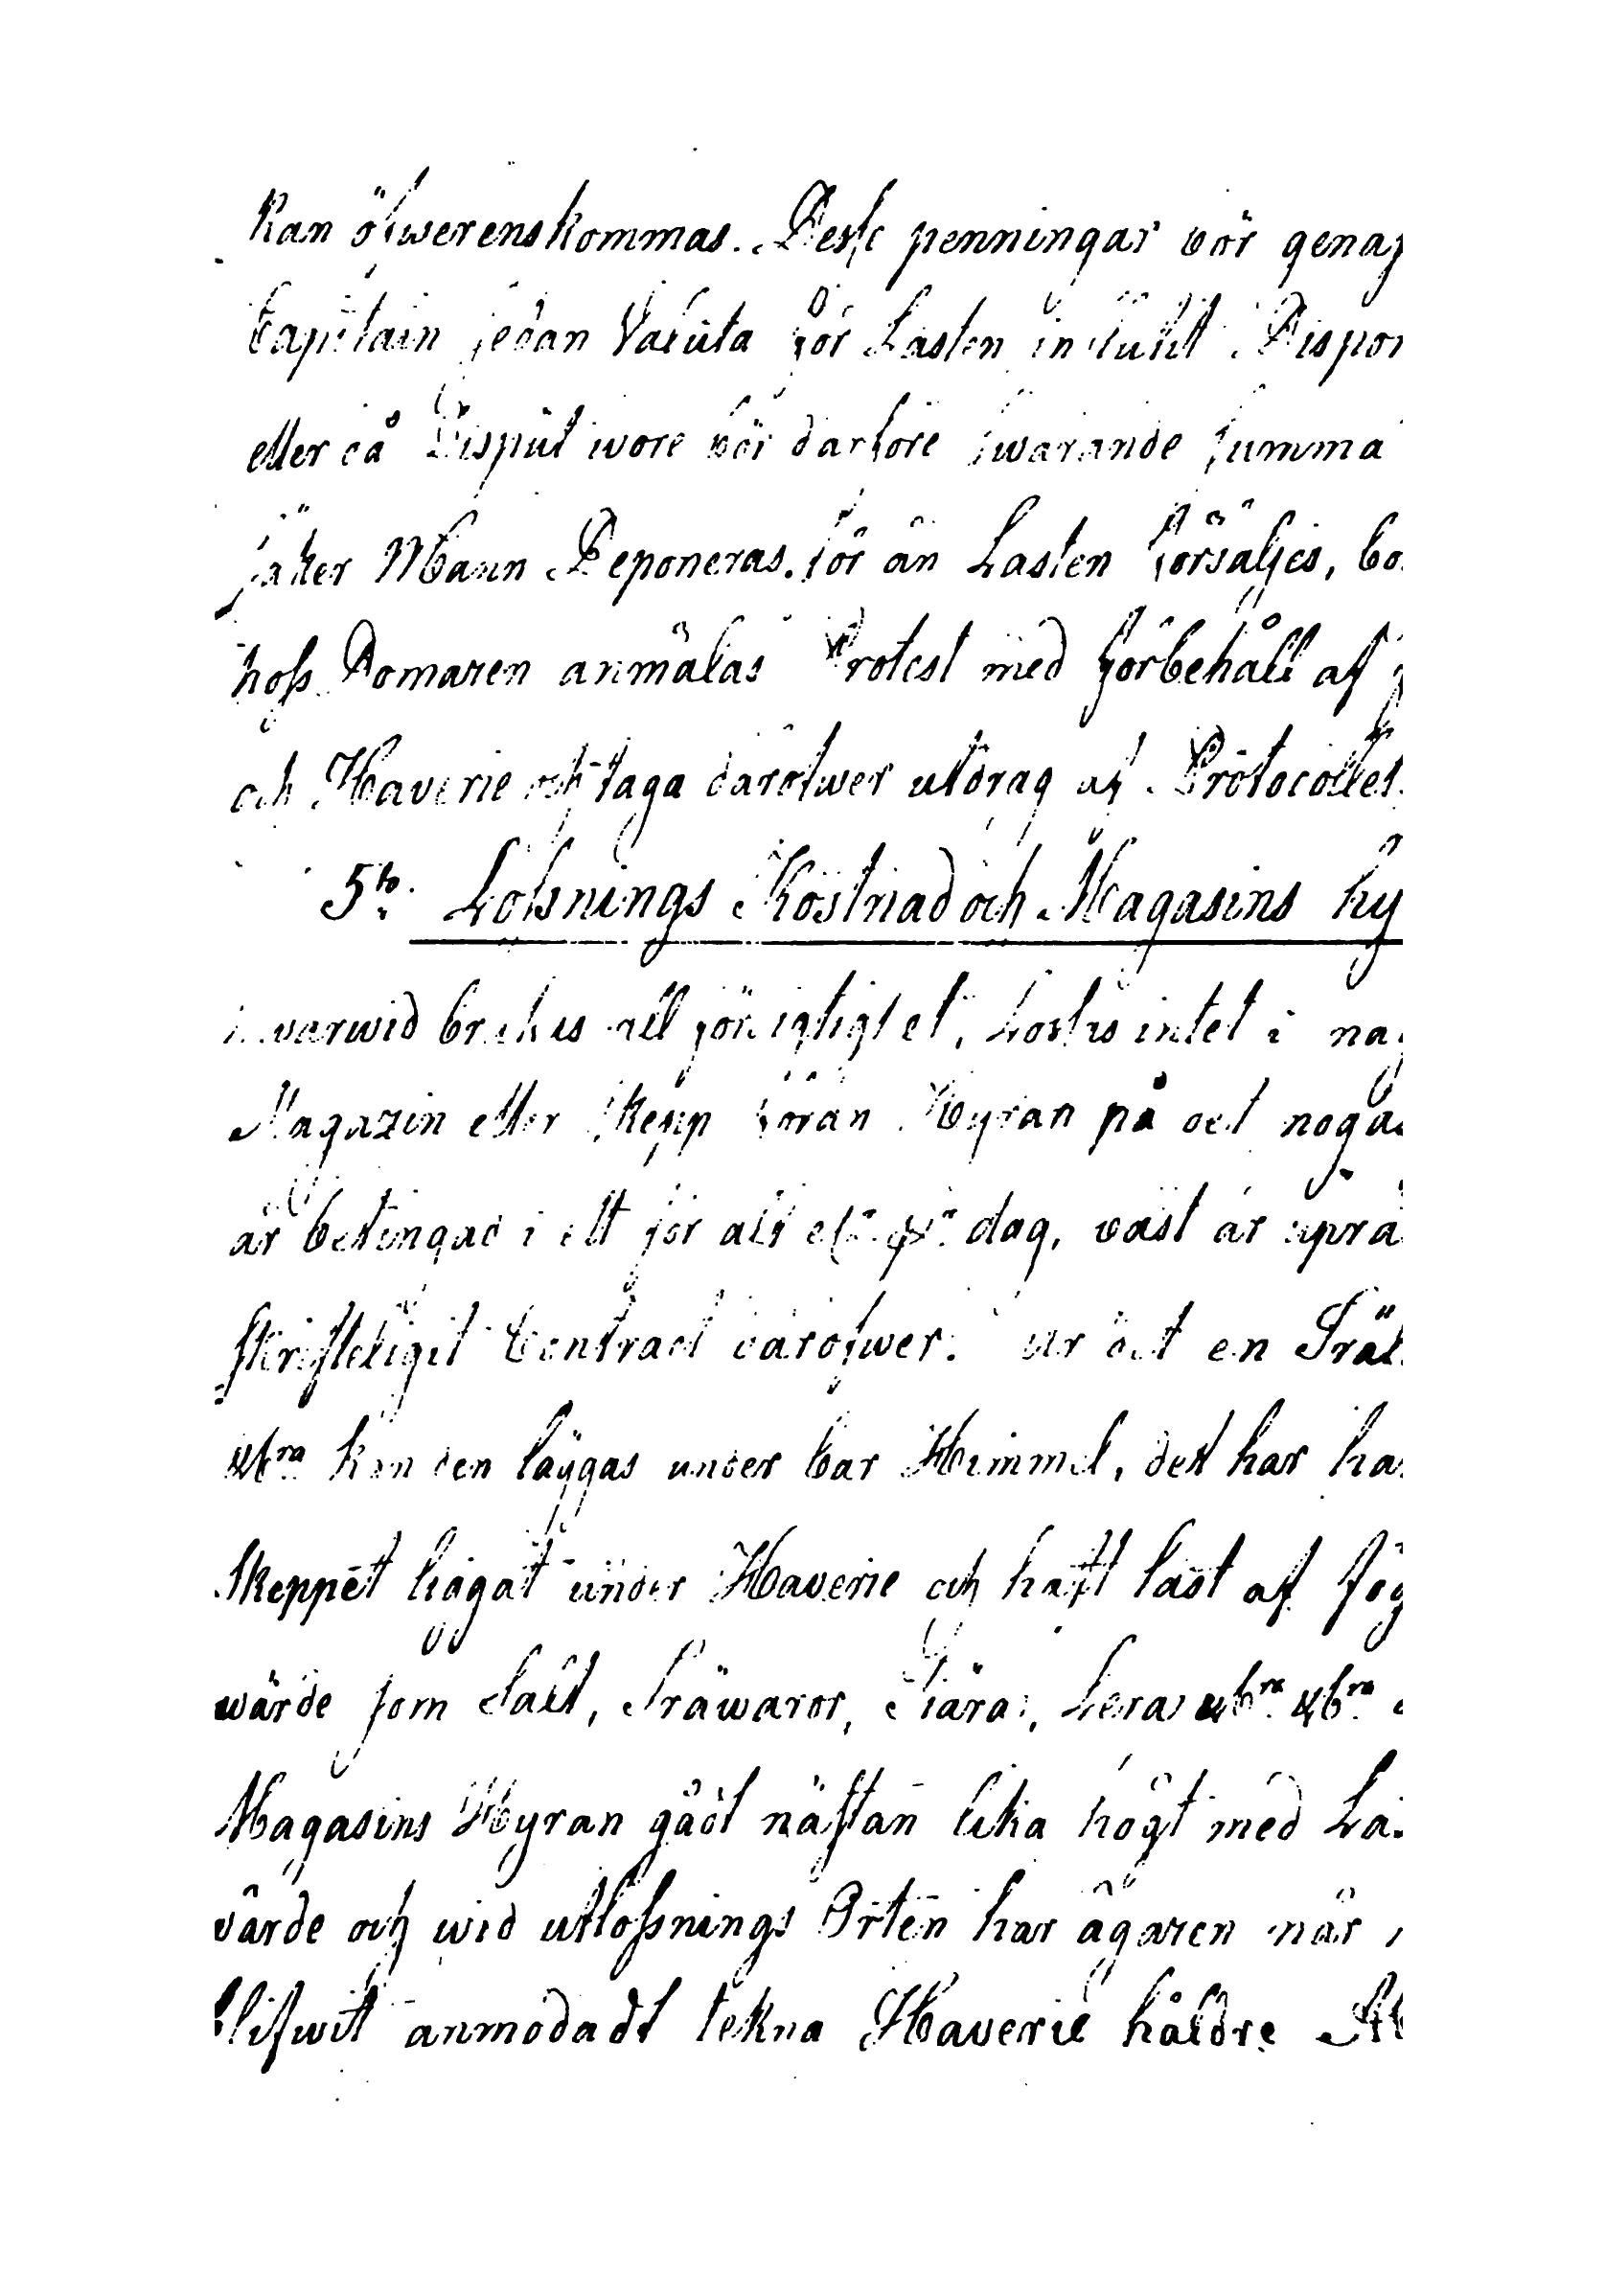 kan öfwerenskommas. Desse penningar bör genas
Capitain sedan Valuta för Lasten influtit Dispon
eller då Disput wore bör därföre swarande summa
säker Mann Deponeras. för än Lasten försäljes, bö
hoss Domaren anmälas Protest med förbehåll af
och Haverie och taga däröfwer utdrag af Protocollet
5to. Lossnings Kostnad och Magasins hy
härwid brukas all försigtighet, Lossas intet i någ
Magazin eller Skepp förän Hyran på det noga
är betingad i ett för alt elr. pr. dag, bäst är uprä
Skrifteligit Contract däröfwer. Är det en Trä
&bra kan den läggas under bar Himmel, det har hä
Skeppet liägat under Haverie och haft last af fög
wärde som Salt, Träwaror, Tiära, Lera &bra &bra
Magasins Hyran gådt nästan lika högt med La
värde och wid utlossnings Orten har ägaren när
blifwit anmodadt tekna Haverie häldre Ab